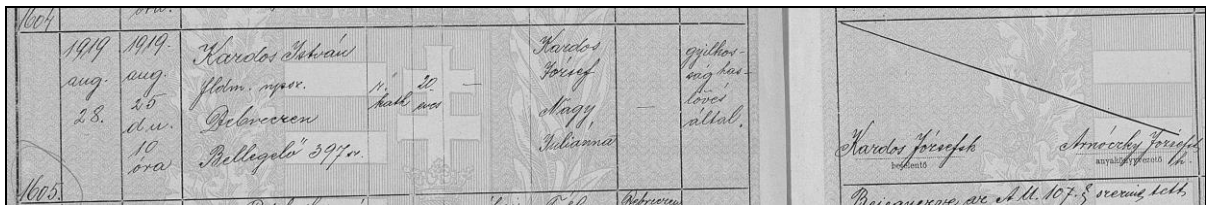 1604
óra.
1919 aug. 28.
1919. aug. 25 d.u. 10 óra
Kardos István
fldm. npsz.
Debreczen
Bellegelő 397 sz.
r. kath
20 éves
—
Kardos
József
Nagy
Juliánna
—
gyilkos-
ság has-
lövés
által.
Kardos József sk
bejelentő
Arnóczky József
anyakönyvvezető
1605.
Debreczen
az A.U. 107. § szerint tett